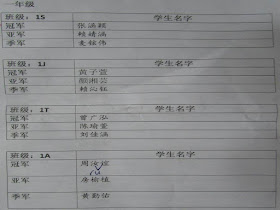 一年级
班级：1S 学生名字
冠军 张
亚军 赖靖涵
季军 麦铭伟
班级：1J 学生名字
冠军 黄子萱
亚军 颜湘芸
季军 赖沁钰
班级：1T 学生名字
冠军 曾广泓
亚军 陈瑜萱
季军 刘佳涵
班级：1A 学生名字
冠军 周汝
亚军 詹愉植
季军 黄勤